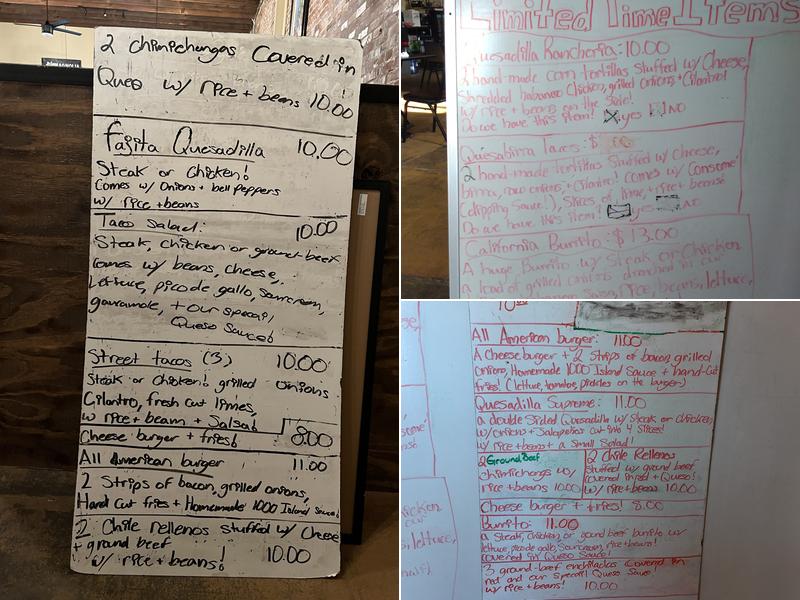 2 chimichangas Covered in
Queso w/ rice + beans 10.00
Fajita Quesadilla 10.00
Steak or Chicken!
Comes w/ Onions + bell peppers
w/ rice + beans
Taco Salad: 10.00
Steak, chicken or ground beef
comes w/ beans, cheese,
Lettuce, pico de gallo, sourcream,
+ our special
Queso Sauce!
Street tacos (3) 10.00
Steak or chicken! grilled onions
Cilantro, fresh cut limes,
w/ rice + beans + Salsa!
Cheese burger + fries! 8.00
All American burger 11.00
2 Strips of bacon, grilled onions,
Hand Cut fries + Homemade 1000 Island Sauce!
2 Chile rellenos Stuffed w/ Cheese
+ ground beef
w/ rice + beans! 10.00
Limited Time Items
uesadilla Rancheria: 10.00
2 hand-made corn tortillas Stuffed w/ Cheese,
Shredded habanero Chicken, grilled onions + Cilantro!
w/ rice + beans on the side!
Do we have this item! yes NO
Quesabirria Tacos: $
2 hand-made tortillas Stuffed w/ Cheese,
birria, raw onions + Cilantro! comes w/ Consome
(dipping Sauce!), Slices of lime, + rice + beans!
Do we have this item! yes NO
California Burrito: $13.00
A huge Burrito w/ Steak or Chicken
a load of grilled onions drenched in our
Salsa, rice, beans, lettuce,
10.00
All American burger: 11.00
A Cheese burger + 2 Strips of bacon, grilled
onion, Homemade 1000 Island Sauce + hand-Cut
fries! (lettuce, tomatoe, pickles on the burger)
Quesadilla Supreme: 11.00
a double Sided Quesadilla w/ Steak or chicken
w/ onions + Jalapeños cut into 4 Slices!
w/ rice + beans + a Small Salad!
2 Ground Beef
chimichangs w/
rice + beans 10.00
2 Chile Rellenos
Stuffed w/ ground beef
covered in red + Queso!
w/ rice + beans 10.00
Cheese burger + fries! 8.00
Burrito: 11.00
a Steak, Chicken, or ground beef burrito w/
lettuce, pico de gallo, Sourcream, rice + beans!
covered in Queso Sauce!
3 ground-beef enchiladas Covered in
red and our special Queso Sauce!
w/ rice + beans! 10.00